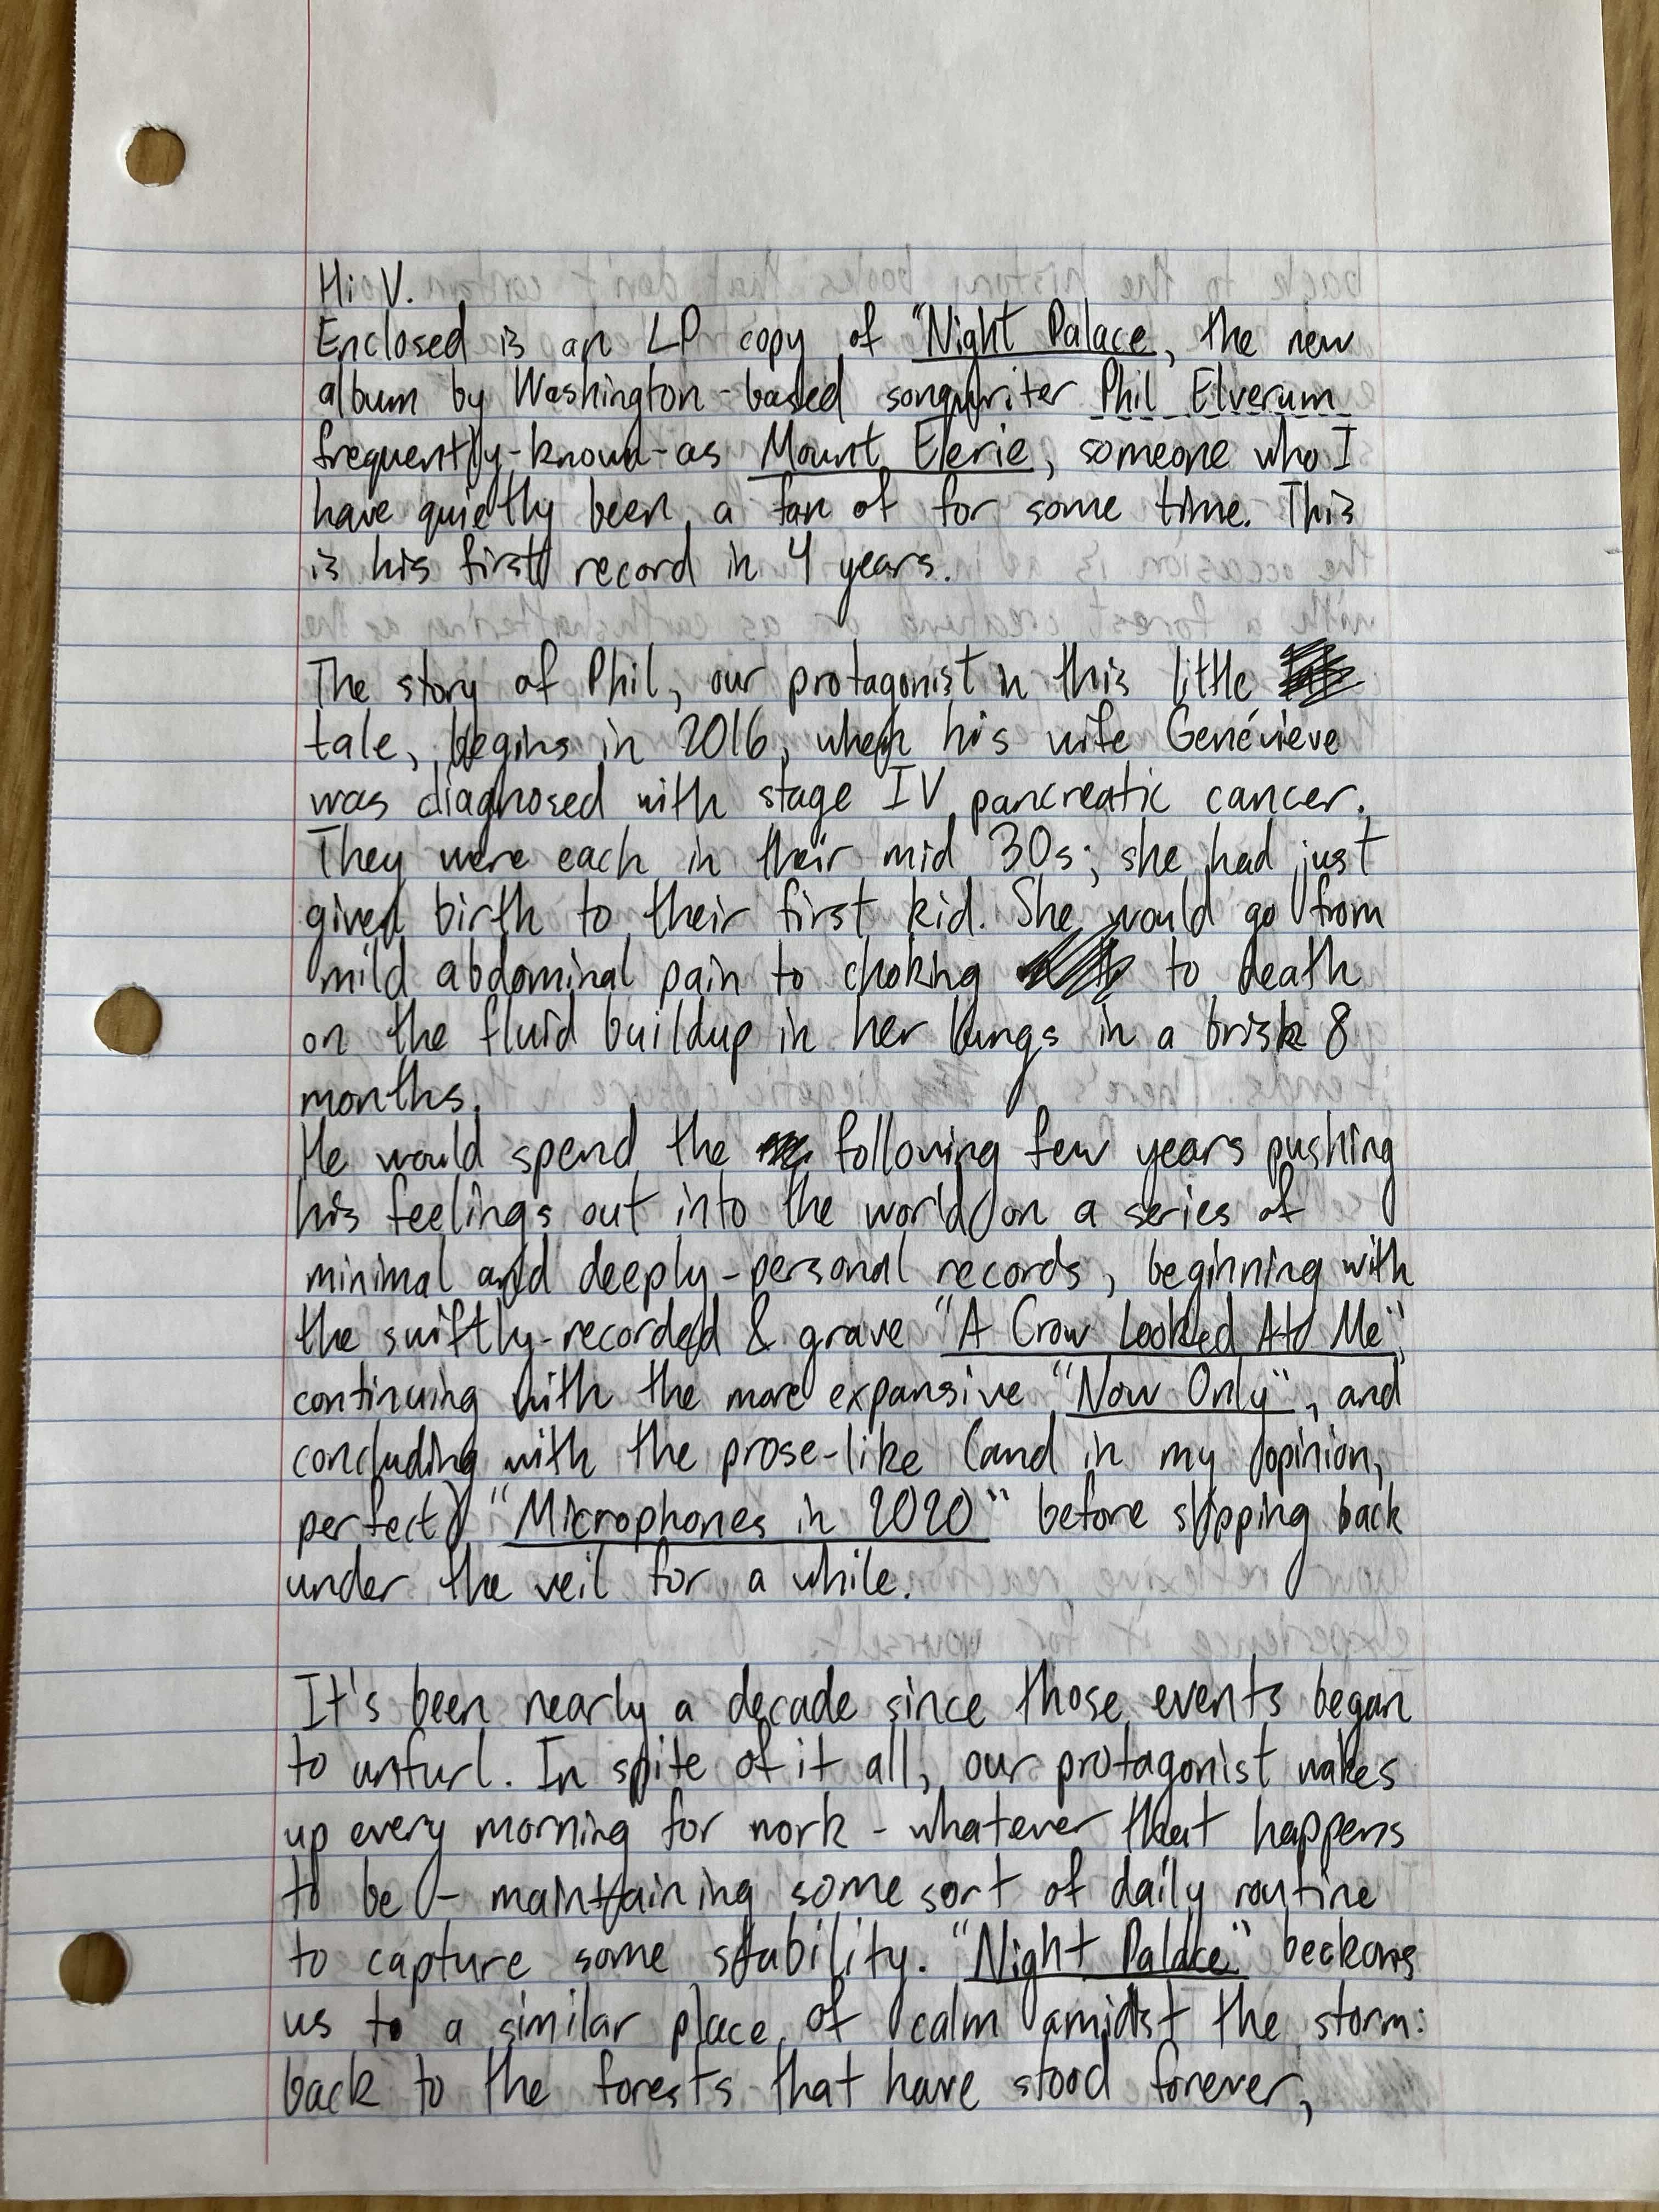 Hi V.
Enclosed is an LP copy of "Night Palace, the new
album by Washington-based songwriter Phil Elverum
frequently-known-as Mount Eerie, someone who I
have quietly been a fan of for some time. This
is his first record in 4 years.
The story of Phil, our protagonist in this little
tale, begins in 2016, when his wife Genéviève
was diagnosed with stage IV pancreatic cancer.
They were each in their mid 30s; she had just
given birth to their first kid. She would go from
mild abdominal pain to choking to death
on the fluid buildup in her lungs in a brisk 8
months.
He would spend the following few years pushing
his feelings out into the world on a series of
minimal and deeply-personal records, beginning with
the swiftly-recorded & grave "A Crow Looked At Me",
continuing with the more expansive "Now Only", and
concluding with the prose-like (and in my opinion,
perfect) "Microphones in 2020" before slipping back
under the veil for a while.
It's been nearly a decade since those events began
to unfurl. In spite of it all, our protagonist wakes
up every morning for work - whatever that happens
to be - maintaining some sort of daily routine
to capture some stability. "Night Palace" beckons
us to a similar place of calm amidst the storm:
back to the forests that have stood forever,